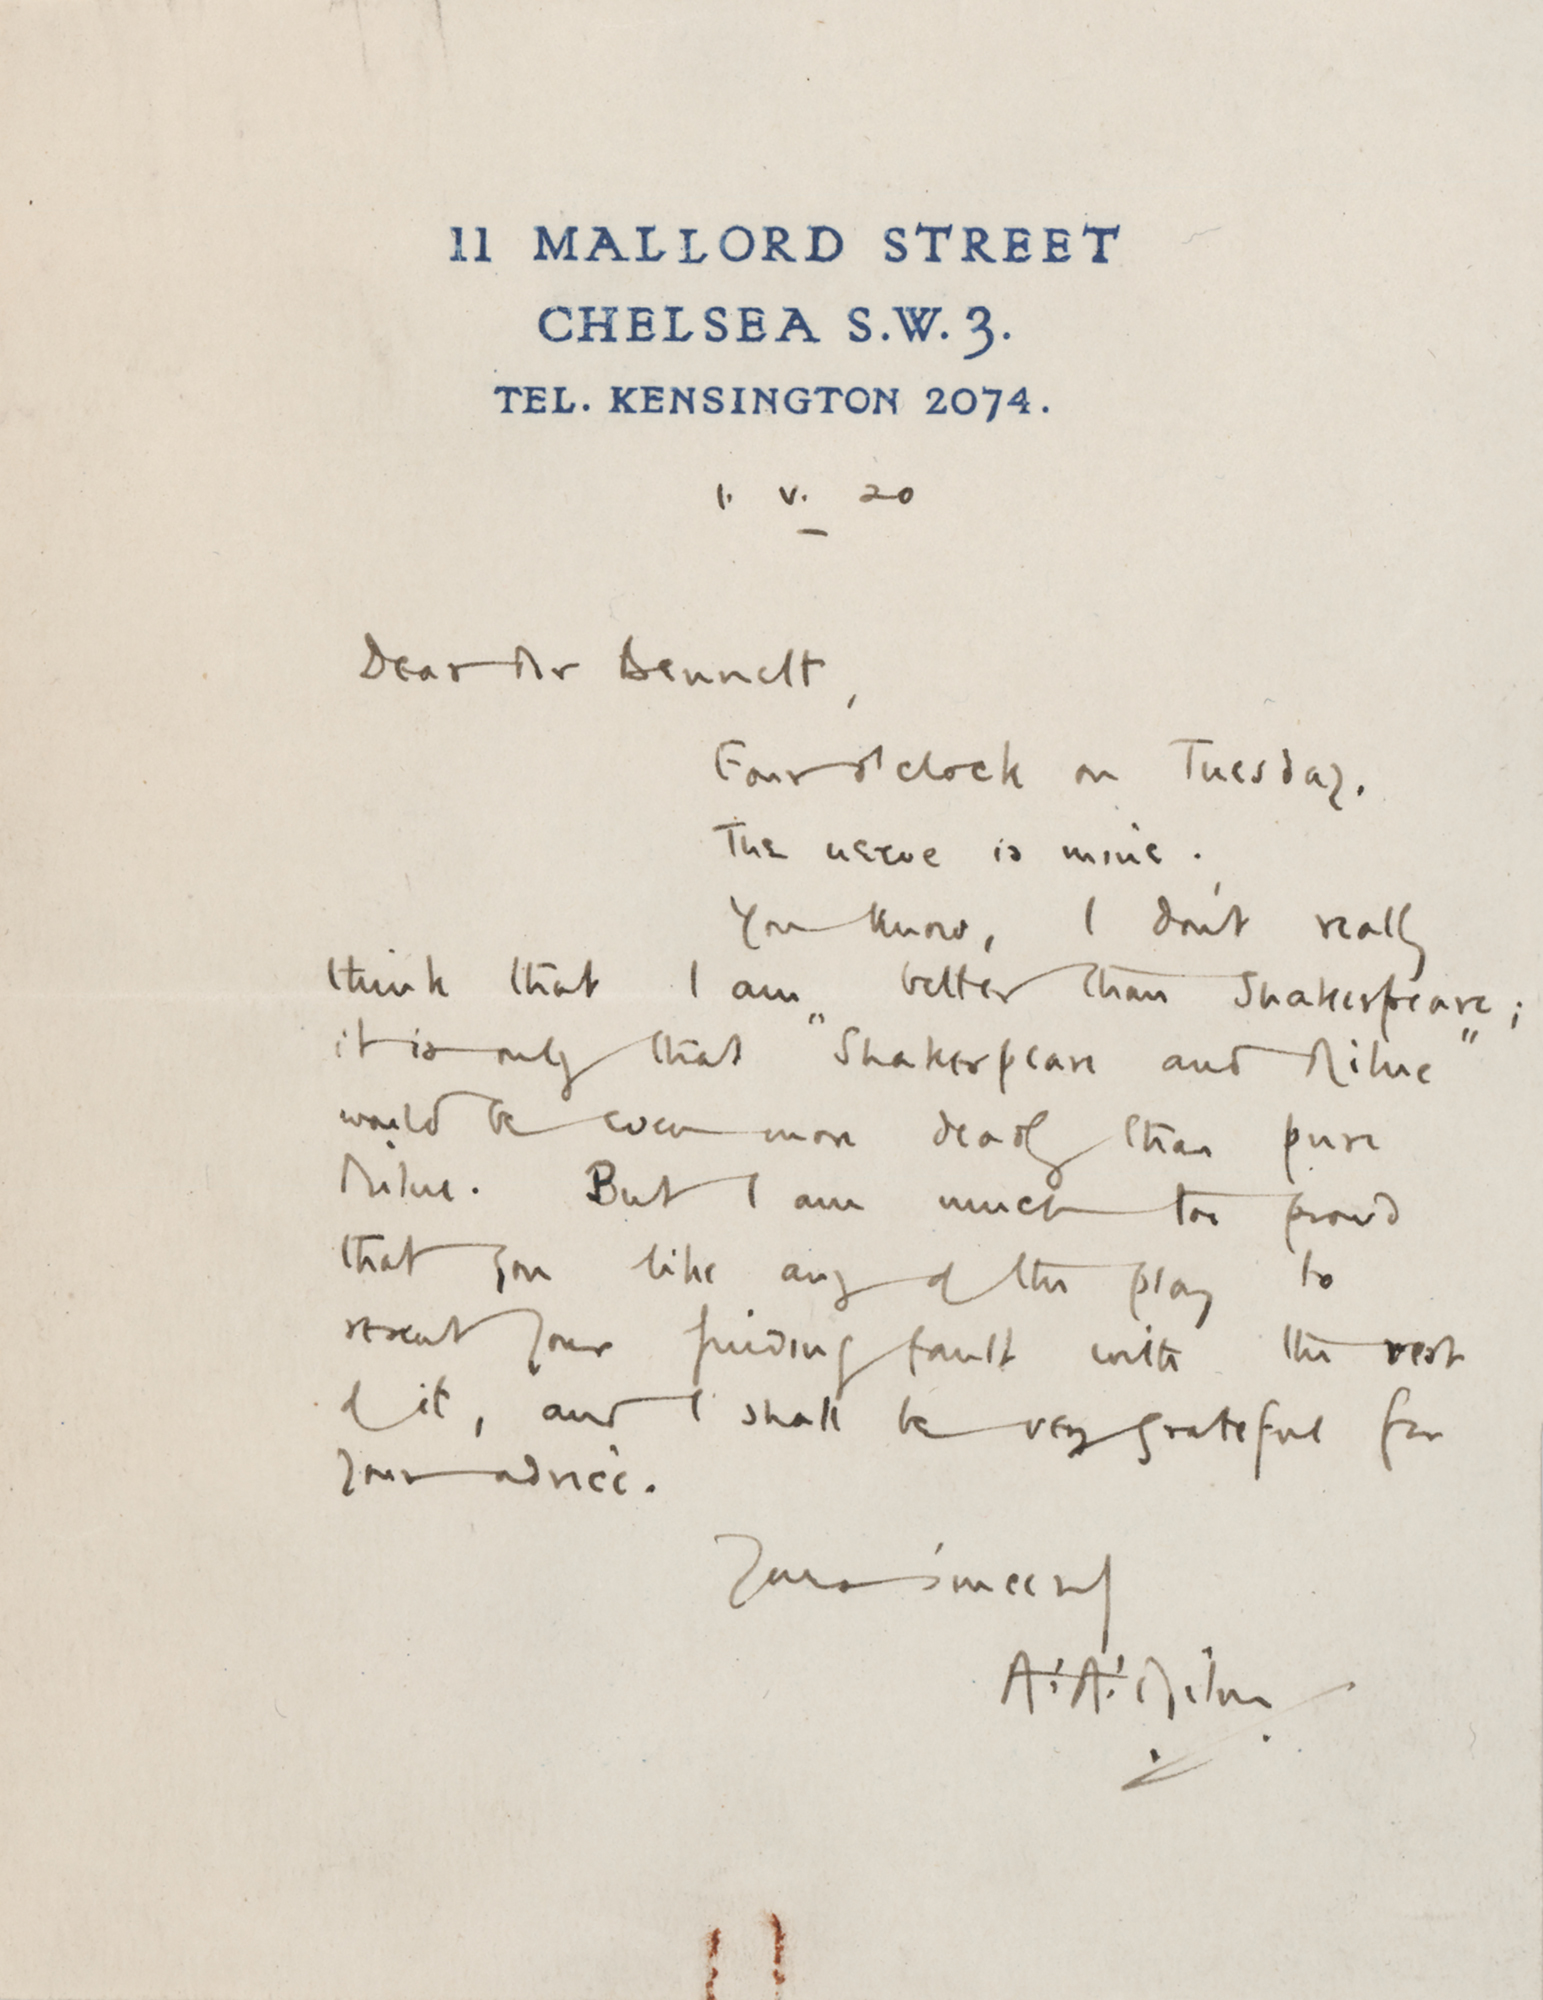 11 MALLORD STREET
CHELSEA S.W.3.
TEL. KENSINGTON 2074.
1. V. 20
Dear Mr Bennett,
Four o'clock on Tuesday.
The nerve is mine.
You know, I don't really
think that I am better than Shakespeare;
it is only that "Shakespeare and Milne"
would be even more deadly than pure
Milne. But I am much too proud
that you like any of the play to
resent your finding fault with the rest
of it, and I shall be very grateful for
your advice.
Yours sincerely
A. A. Milne